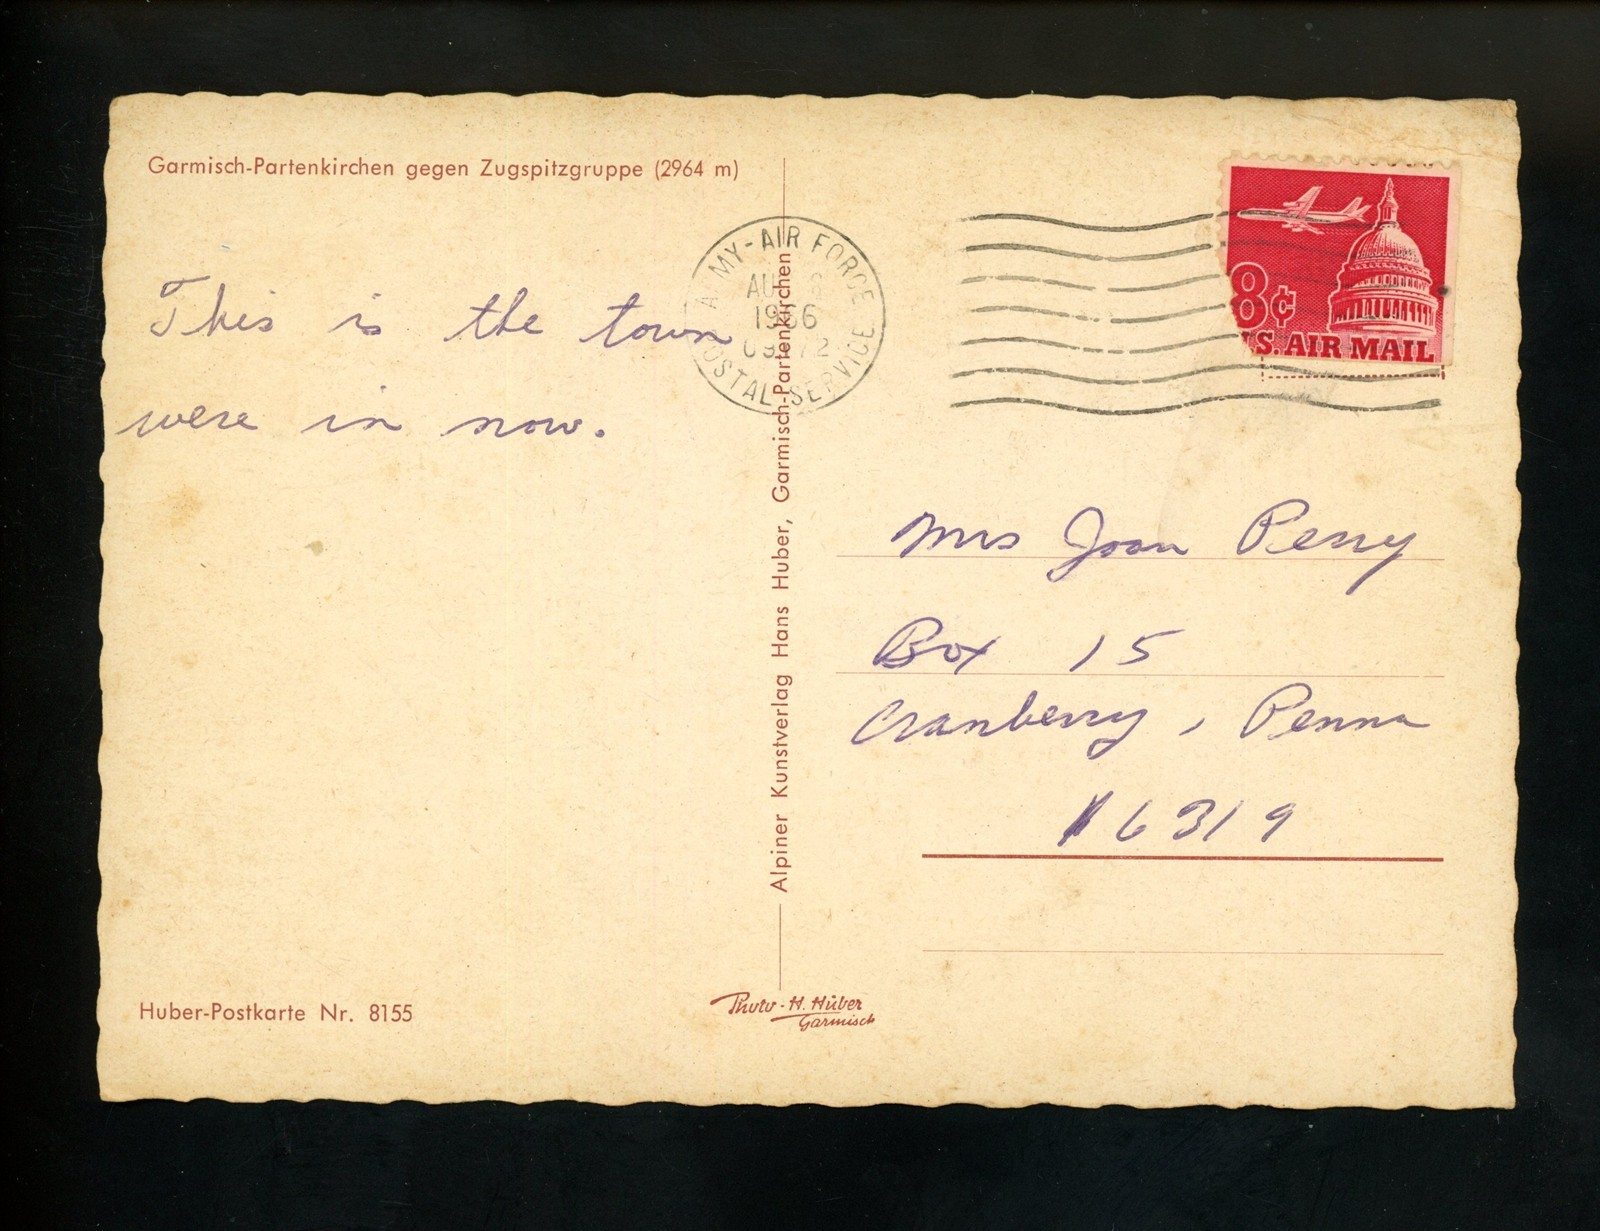 Garmisch-Partenkirchen gegen Zugspitzgruppe (2964 m)
This is the town
were in now.
ARMY-AIR FORCE
AU
1966
POSTAL SERVICE
8¢
U.S. AIR MAIL
Alpiner Kunstverlag Hans Huber, Garmisch-Partenkirchen
Mrs Joan Perry
Box 15
Cranberry, Penna
16319
Huber-Postkarte Nr. 8155
Photo-H. Huber
Garmisch